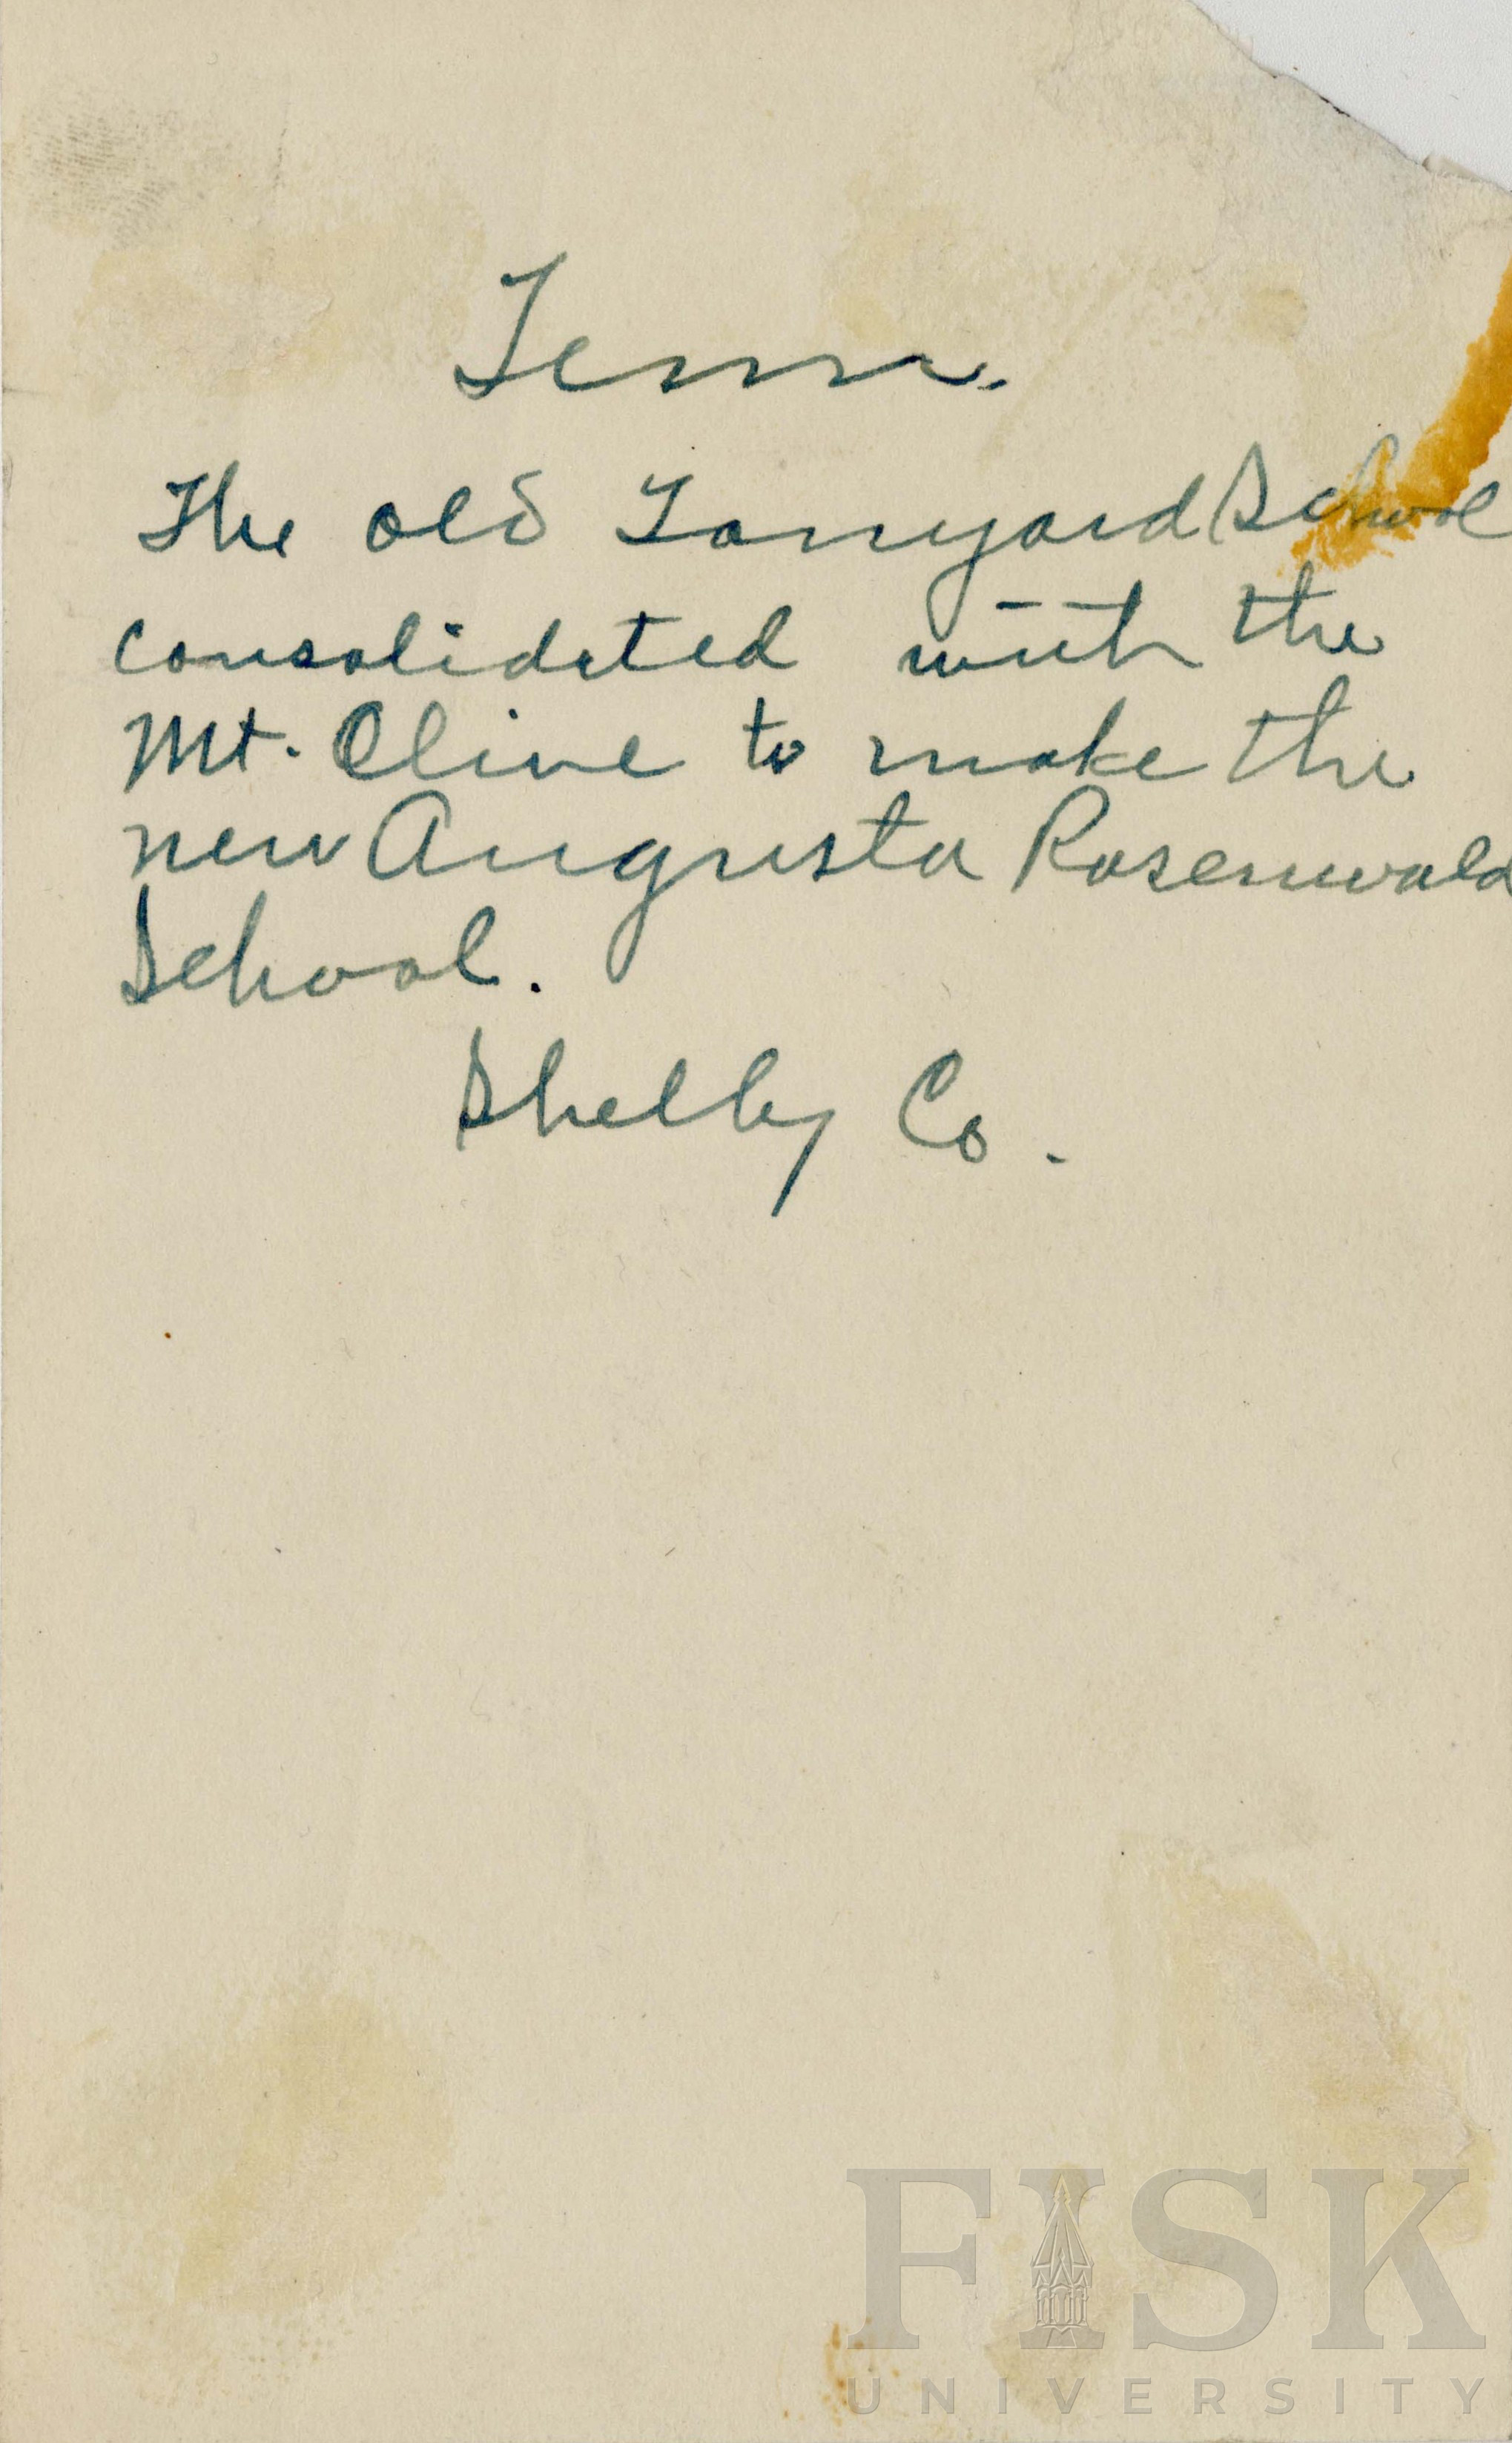 Tenn.
The old Tanyard School
consolidated with the
Mt. Olive to make the
new Augusta Rosenwald
School.
Shelby Co.
FISK
UNIVERSITY